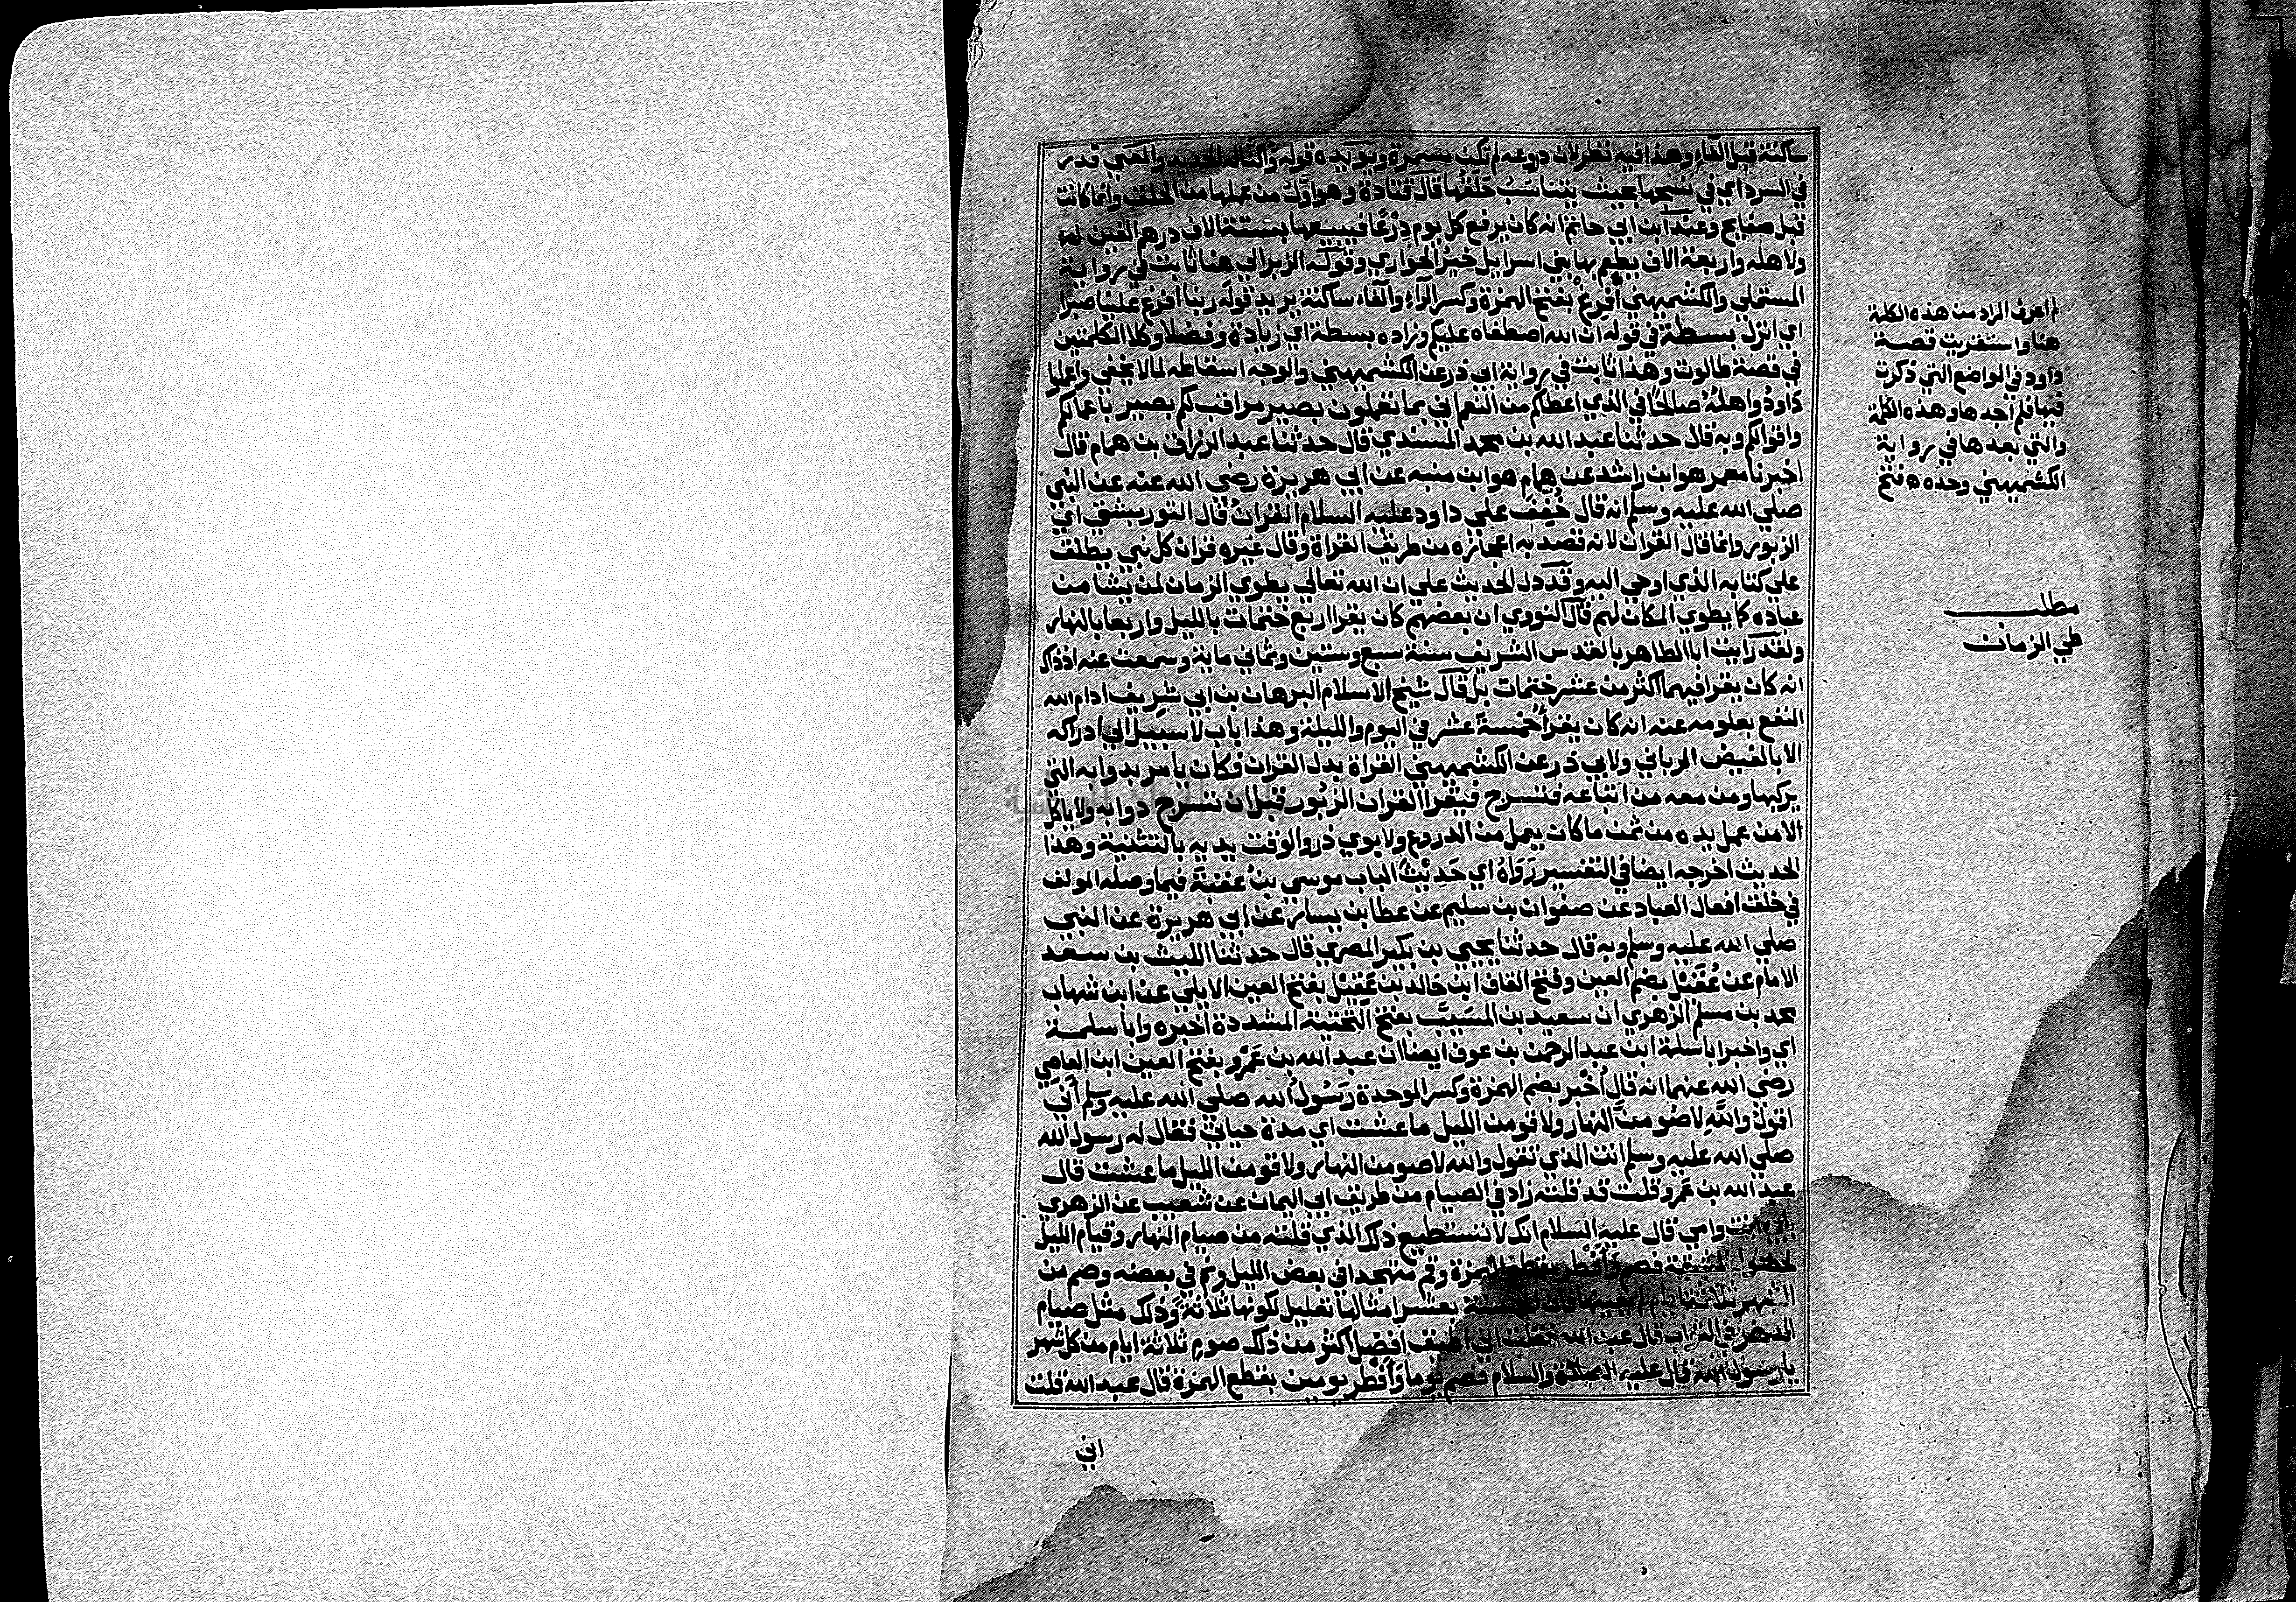 ساكنة قبل الفاء وهذا فيه نظر لان دروعه لم تكن مسمرة ويويده قوله والناله الحديد والمعني قدر
في السرد اي في نسجها بحيث يتناسب حلقها قال قتادة وهو اول من عملها من الحلق وانما كانت
قبل صفايح وعند ابن ابي حاتم انه كان يرفع كل يوم درعا فيبيعها بستة الاف درهم الفين له
ولاهله واربعة الاف يطعم بها بني اسرايل خبز الحواري وقوله الزبر الي هنا ثابت في رواية
المستملي والكشميهني افرغ بفتح الهمزة وكسر الراء والفاء ساكنة يريد قوله ربنا افرغ علينا صبرا
اي انزل بسطة في قوله ان الله اصطفاه عليكم وزاده بسطة اي زيادة وفضلا وكلا الكلمتين
في قصة طالوت وهذا ثابت في رواية ابي ذر عن الكشميهني والوجه اسقاطه لما لا يخفي واعملوا
داود واهله صالحا في الذي اعطاكم من النعم اني بما تعملون بصير مراقب لكم بصير باعمالكم
واقوالكم وبه قال حدثنا عبد الله بن محمد المسندي قال حدثنا عبد الرزاق بن همام قال
اخبرنا معمر هو ابن راشد عن همام هو ابن منبه عن ابي هريرة رضي الله عنه عن النبي
صلي الله عليه وسلم انه قال خفف علي داود عليه السلام القران قال التوربشتي اي
الزبور وانما قال القران لانه قصد به اعجازه من طريق القراة وقال غيره قران كل نبي يطلق
علي كتابه الذي اوحي اليه وقد دل الحديث علي ان الله تعالي يطوي الزمان لمن يشا من
عباده كما يطوي المكان لهم قال النووي ان بعضهم كان يقرا اربع ختمات بالليل واربعا بالنهار
ولقد رايت ابا الطاهر بالقدس الشريف سنة سبع وستين وثماني ماية وسمعت عنه اذ ذاك
انه كان يقرا فيهما اكثر من عشر ختمات بل قال شيخ الاسلام البرهان بن ابي شريف ادام الله
النفع بعلومه عنه انه كان يقرا خمسة عشر في اليوم والليلة وهذا باب لا سبيل الي ادراكه
الا بالفيض الرباني ولابي ذر عن الكشميهني القراة بدل القران فكان يامر بدوابه التي
يركبها ومن معه من اتباعه فتسرج فيقرا القران الزبور قبل ان تسرج دوابه ولا ياكل
الا من عمل يده من ثمن ما كان يعمل من الدروع ولابوي ذر والوقت يديه بالتثنية وهذا
الحديث اخرجه ايضا في التفسير رواه اي حديث الباب موسي بن عقبة فيما وصله المولف
في خلق افعال العباد عن صفوان بن سليم عن عطا بن يسار عن ابي هريرة عن النبي
صلي الله عليه وسلم وبه قال حدثنا يحيي بن بكير المصري قال حدثنا الليث بن سعد
الامام عن عقيل بضم العين وفتح القاف ابن خالد بن عقيل بفتح العين الايلي عن ابن شهاب
محمد بن مسلم الزهري ان سعيد بن المسيب بفتح التحتية المشددة اخبره وابا سلمة
اي واخبر ابا سلمة ابن عبد الرحمن بن عوف ايضا ان عبد الله بن عمرو بفتح العين ابن العاصي
رضي الله عنهما انه قال اخبر بضم الهمزة وكسر الموحدة رسول الله صلي الله عليه وسلم اني
اقول والله لاصومن النهار ولاقومن الليل ما عشت اي مدة حياتي فقال له رسول الله
صلي الله عليه وسلم انت الذي تقول والله لاصومن النهار ولاقومن الليل ما عشت قال
عبد الله بن عمرو قلت قد قلته زاد في الصيام من طريق ابي اليمان عن شعيب عن الزهري
بابي انت وامي قال عليه السلام انك لا تستطيع ذلك الذي قلته من صيام النهار وقيام الليل
لحصول المشقة فصم وافطر بقطع الهمزة وقم متهجدا في بعض الليل ونم في بعضه وصم من
الشهر ثلاثة ايام فان الحسنة بعشر امثالها تعليل لكونها ثلاثة وذلك مثل صيام
الدهر في الثواب قال عبد الله فقلت اني اطيق افضل اكثر من ذلك صوم ثلاثة ايام من كل شهر
يا رسول الله قال عليه الصلاة والسلام فصم يوما وافطر يومين بقطع الهمزة قال عبد الله قلت
اني
لم اعرف المراد من هذه الكلمة
هنا واستقريت قصة
داود في المواضع التي ذكرت
فيها فلم اجدها وهذه الكلمة
والتي بعدها في رواية
الكشميهني وحده ه فتح
مطلب
طي الزمان